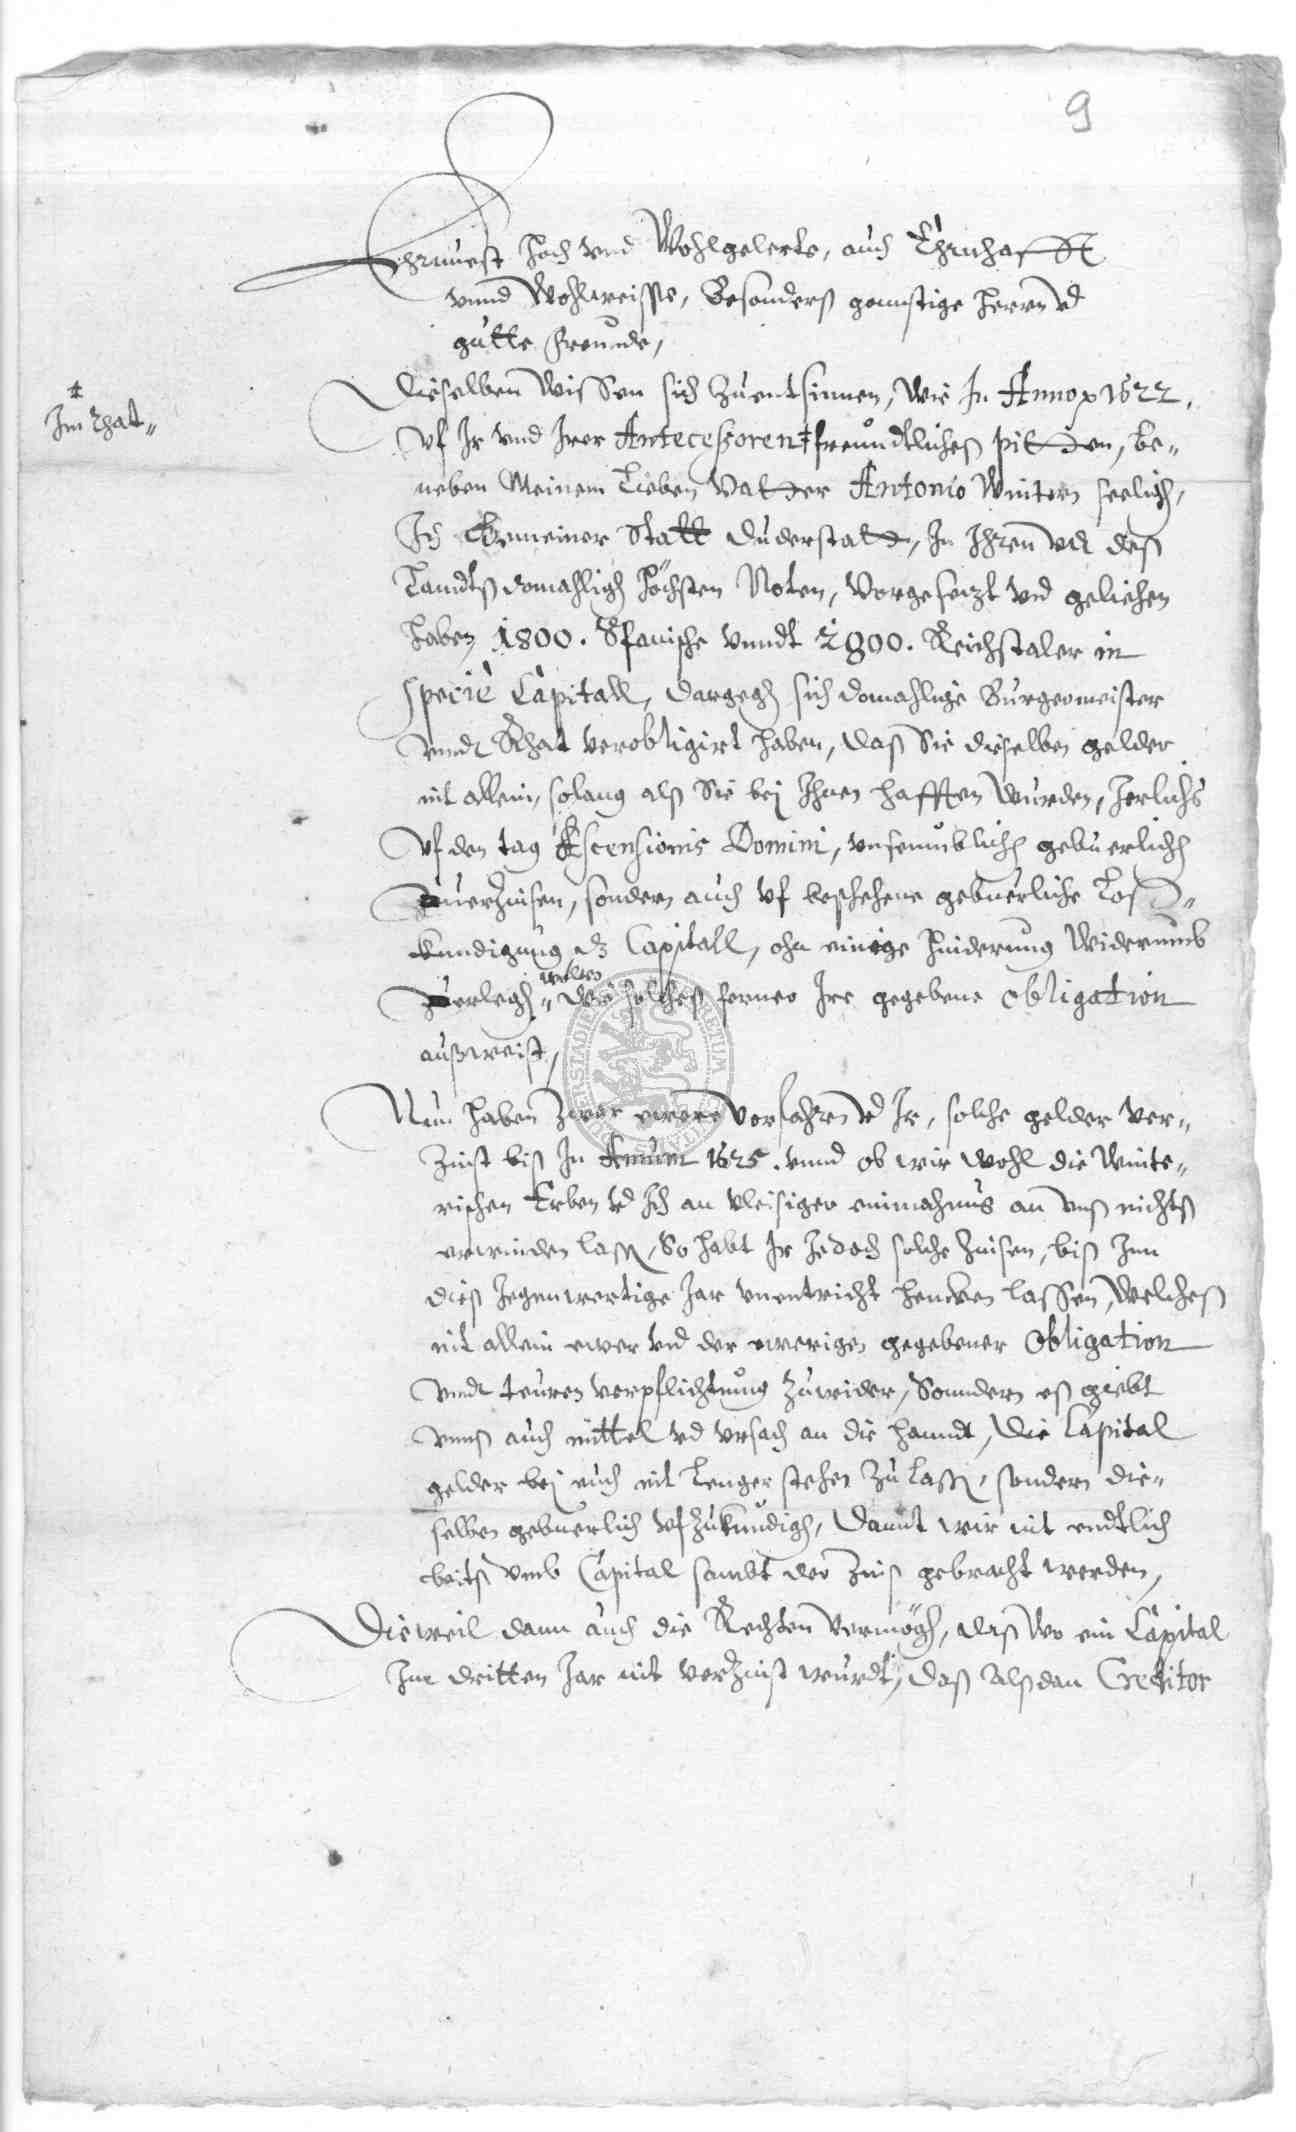 9
Ehrnuest Hoch vnd Wohlgelerte, auch Ehrnhafft
vnnd Wohlweisse, Besonders gonnstige Herrn vd
gutte freunde,
Dieselben wissen sich zuentsinnen, wie In Anno 1622.
‡
Im Rhat„
vf Ir vnd Irer Antecessoren ‡ freundtliches pitten, be„
neben Meinem Lieben Vatter Antonio Wintern seelig,
Ich Gemeiner Statt Duderstatt, In Ihren vdt des
Landts domahlig Höchsten Noten, Vorgesezt vnd geliehen
haben 1800. Spanische vnndt 2800. Reichstaler in
specie Capitall, dargegen sich domahlige Burgermeister
vnndt Rhat verobligirt haben, daß Sie dieselben gelder
nit allein, solang als Sie bej Ihnen hafften wurden, Jerlichs
vf den tag Ascensionis Domini, gebuerlich
Zuuerzinsen, sondern auch vf beschehene gebuerliche Loß„
kundigung Capitall, ohn einige hinderung Widerumb
Zuerlegen„ wollen wie solches ferner Ire gegebene obligation
außweist,
Nun haben zwar ewere Vorfahren vd Ir, solche gelder ver„
zinst biß In Annum 1625. vnnd ob wir wohl die Winte„
rischen Erben vd Ich an vleisiger einmahnus an vns nichts
erwinden lassen, So habt Ir Jedoch solche Zinsen, biß Inn
dieß Jegenwertige Jar vnentricht hencken lassen, welches
nit allein ewer vnd der ewerigen gegebener Obligation
vndt teuren verpflichtung zuwider, Sonndern es giebt
vnns auch mittel vd vrsach an die hanndt, die Capital
gelder bej euch nit Lenger stehen zu lassen, sondern die„
selben gebuerlich vfzukundigen, Damit wir nit endtlich
beits vmb Capital sambt der Zins gebracht werden,
Dieweil dann auch die Rechten vermögen, daß wo ein Capital
Inn dritten Jar nit verzinst wurdt, daß alßdan Creditor